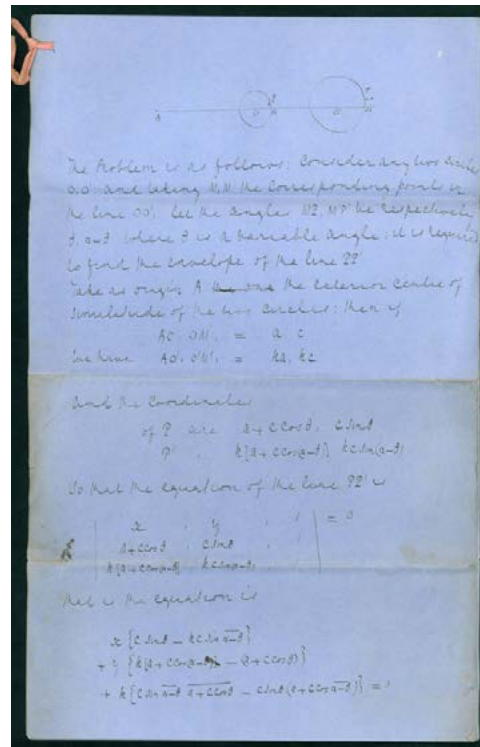 The Problem is as follows: Consider any two circles
O, O' and taking M, M' the corresponding points in
the line OO', let the angles MP, M'P' be respectively
θ, α-θ where θ is a variable angle: it is required
to find the envelope of the line PP'
Take as origin A the exterior centre of
similitude of the two circles: then if
AO, OM, = a, c
we have AO', O'M', = ka, kc
And the coordinates
of P are a + c cos θ, c sin θ
P' , k{a + c cos(α-θ)}, kc sin(α-θ)
So that the equation of the line PP' is
x , y , 1 = 0
a + c cos θ , c sin θ ,
k{a + c cos α-θ} , k c sin α-θ,
that is the equation is
x {c sin θ - kc sin α-θ}
+ y {k(a + c cos α-θ) - (a + c cos θ)}
+ k{c sin α-θ a + c cos θ - c sin θ (a + c cos α-θ)} = 0